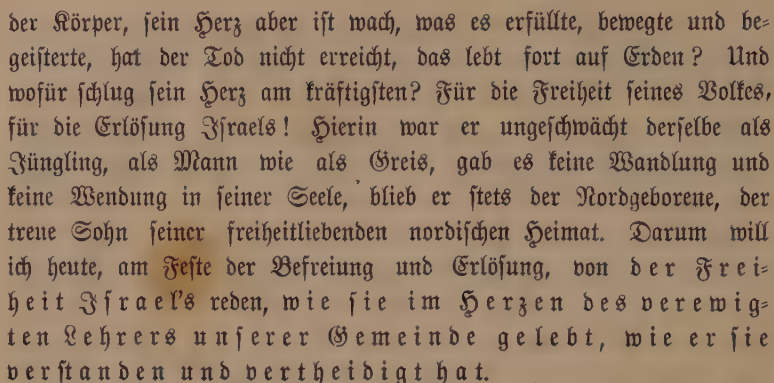 der Körper, sein Herz aber ist wach, was es erfüllte, bewegte und be-
geisterte, hat der Tod nicht erreicht, das lebt fort auf Erden? Und
wofür schlug sein Herz am kräftigsten? Für die Freiheit seines Volkes,
für die Erlösung Israels! Hierin war er ungeschwächt derselbe als
Jüngling, als Mann wie als Greis, gab es keine Wandlung und
keine Wendung in seiner Seele, blieb er stets der Nordgeborene, der
treue Sohn seiner freiheitliebenden nordischen Heimat. Darum will
ich heute, am Feste der Befreiung und Erlösung, von der Frei-
heit Israel's reden, wie sie im Herzen des verewig-
ten Lehrers unserer Gemeinde gelebt, wie er sie
verstanden und vertheidigt hat.